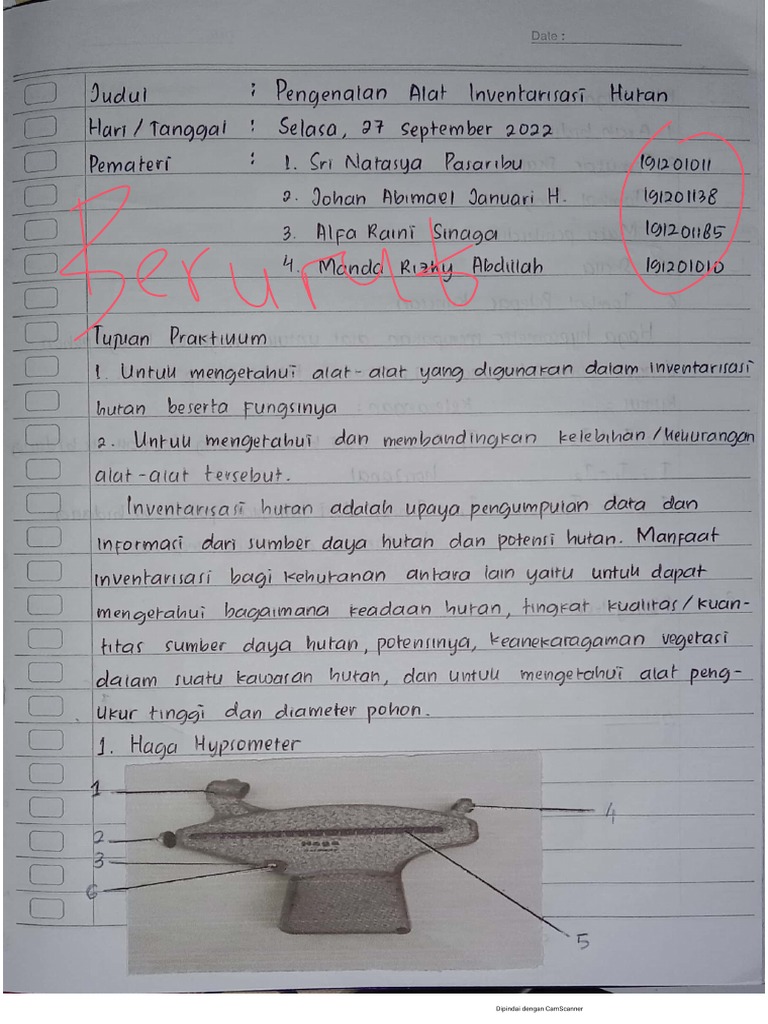 Date :
Judul : Pengenalan Alat Inventarisasi Hutan
Hari / Tanggal : Selasa, 27 September 2022
Pemateri : 1. Sri Natasya Pasaribu 191201011
2. Johan Abimael Januari H. 191201138
3. Alfa Raini Sinaga 191201185
4. Manda Rizky Abdillah 191201010
Berurut
Tujuan Praktikum
1. Untuk mengetahui alat-alat yang digunakan dalam inventarisasi
hutan beserta fungsinya
2. Untuk mengetahui dan membandingkan kelebihan / kekurangan
alat-alat tersebut.
Inventarisasi hutan adalah upaya pengumpulan data dan
informasi dari sumber daya hutan dan potensi hutan. Manfaat
inventarisasi bagi kehutanan antara lain yaitu untuk dapat
mengetahui bagaimana keadaan hutan, tingkat kualitas / kuan-
titas sumber daya hutan, potensinya, keanekaragaman vegetasi
dalam suatu kawasan hutan, dan untuk mengetahui alat peng-
ukur tinggi dan diameter pohon.
1. Haga Hypsometer
1
4
2
HAGA
3
6
5
Dipindai dengan CamScanner